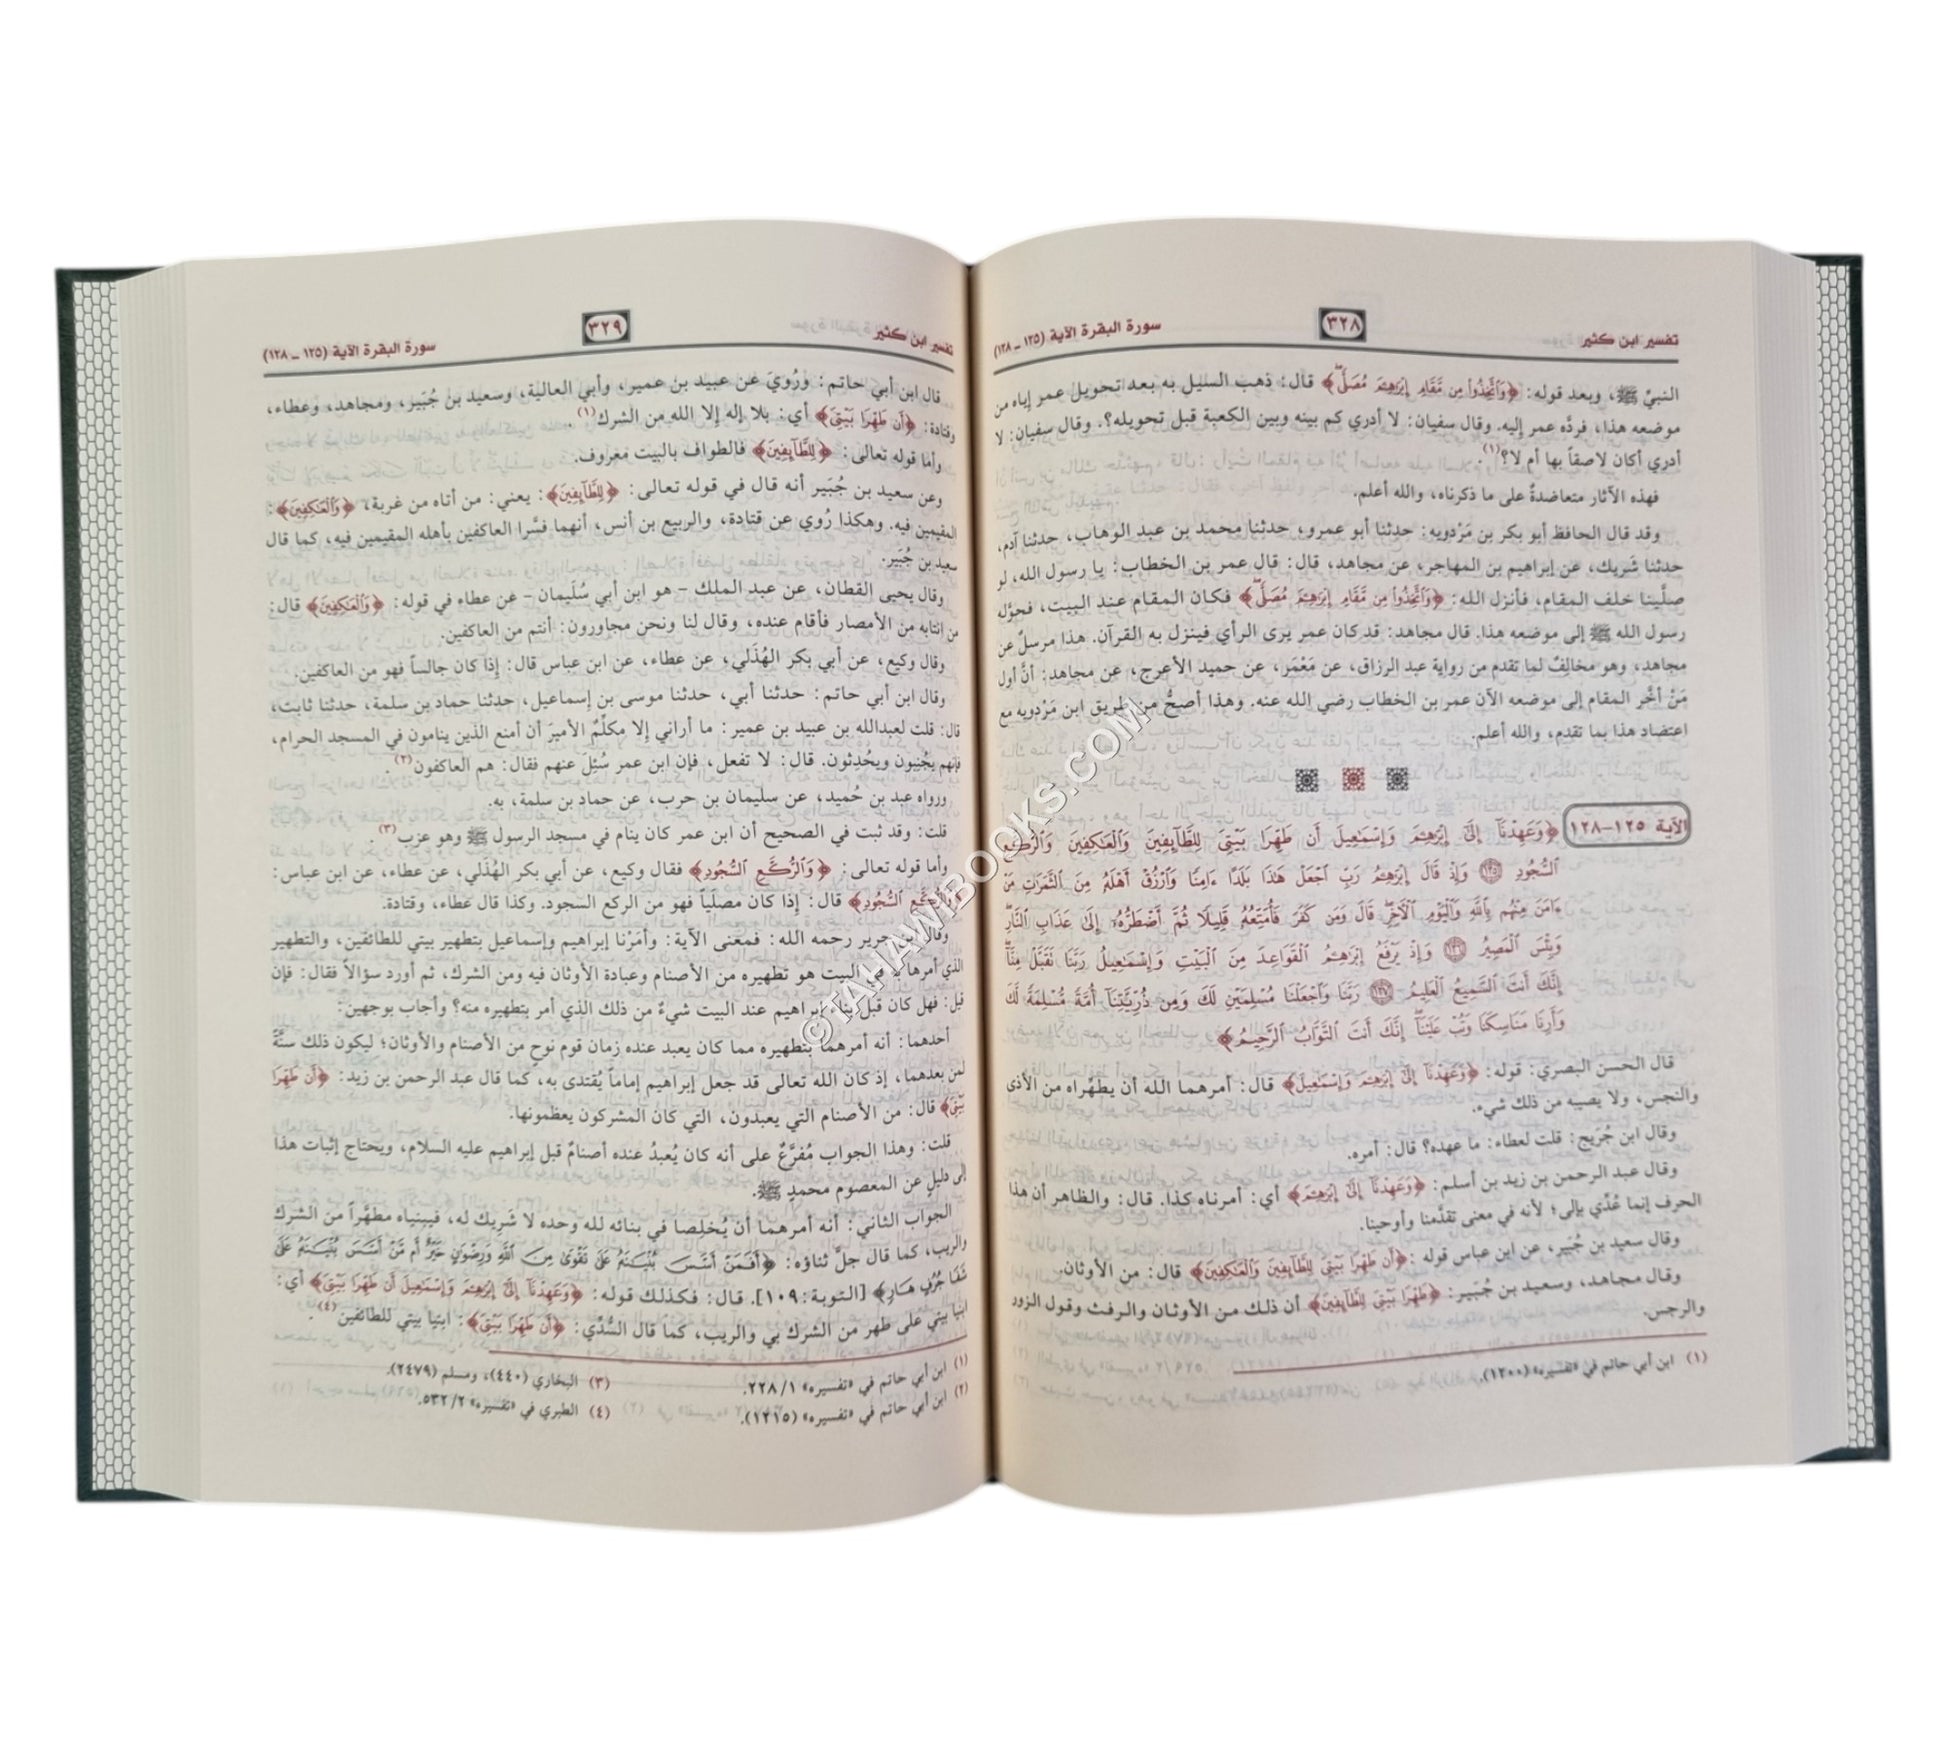 تفسير ابن كثير ٣٢٨ سورة البقرة الآية (١٢٥ ـ ١٢٨)
النبيُّ ﷺ، وبعد قوله: ﴿وَٱتَّخِذُوا۟ مِن مَّقَامِ إِبْرَٰهِـۧمَ مُصَلًّى﴾ قال: ذهب السيل به بعد تحويل عمر إياه من
موضعه هذا، فردَّه عمر إليه. وقال سفيان: لا أدري كم بينه وبين الكعبة قبل تحويله؟. وقال سفيان: لا
أدري أكان لاصقاً بها أم لا؟(١).
فهذه الآثار متعاضدةٌ على ما ذكرناه، والله أعلم.
وقد قال الحافظ أبو بكر بن مَرْدويه: حدثنا أبو عمرو، حدثنا محمد بن عبد الوهاب، حدثنا آدم،
حدثنا شَريك، عن إبراهيم بن المهاجر، عن مجاهد، قال: قال عمر بن الخطاب: يا رسول الله، لو
صلَّينا خلف المقام، فأنزل الله: ﴿وَٱتَّخِذُوا۟ مِن مَّقَامِ إِبْرَٰهِـۧمَ مُصَلًّى﴾ فكان المقام عند البيت، فحوَّله
رسول الله ﷺ إلى موضعه هذا. قال مجاهد: قد كان عمر يرى الرأي فينزل به القرآن. هذا مرسلٌ عن
مجاهد، وهو مخالِفٌ لما تقدم من رواية عبد الرزاق، عن مَعْمَر، عن حميد الأعرج، عن مجاهد: أنَّ أول
مَنْ أخَّر المقام إلى موضعه الآن عمر بن الخطاب رضي الله عنه. وهذا أصحُّ من طريق ابن مَرْدويه مع
اعتضاد هذا بما تقدم، والله أعلم.
الآية ١٢٥-١٢٨ ﴿وَعَهِدْنَآ إِلَىٰٓ إِبْرَٰهِـۧمَ وَإِسْمَـٰعِيلَ أَن طَهِّرَا بَيْتِىَ لِلطَّآئِفِينَ وَٱلْعَـٰكِفِينَ وَٱلرُّكَّعِ
ٱلسُّجُودِ ١٢٥ وَإِذْ قَالَ إِبْرَٰهِـۧمُ رَبِّ ٱجْعَلْ هَـٰذَا بَلَدًا ءَامِنًا وَٱرْزُقْ أَهْلَهُۥ مِنَ ٱلثَّمَرَٰتِ مَنْ
ءَامَنَ مِنْهُم بِٱللَّهِ وَٱلْيَوْمِ ٱلْـَٔاخِرِ قَالَ وَمَن كَفَرَ فَأُمَتِّعُهُۥ قَلِيلًا ثُمَّ أَضْطَرُّهُۥٓ إِلَىٰ عَذَابِ ٱلنَّارِ
وَبِئْسَ ٱلْمَصِيرُ ١٢٦ وَإِذْ يَرْفَعُ إِبْرَٰهِـۧمُ ٱلْقَوَاعِدَ مِنَ ٱلْبَيْتِ وَإِسْمَـٰعِيلُ رَبَّنَا تَقَبَّلْ مِنَّآ
إِنَّكَ أَنتَ ٱلسَّمِيعُ ٱلْعَلِيمُ ١٢٧ رَبَّنَا وَٱجْعَلْنَا مُسْلِمَيْنِ لَكَ وَمِن ذُرِّيَّتِنَآ أُمَّةً مُّسْلِمَةً لَّكَ
وَأَرِنَا مَنَاسِكَنَا وَتُبْ عَلَيْنَآ إِنَّكَ أَنتَ ٱلتَّوَّابُ ٱلرَّحِيمُ﴾
قال الحسن البصري: قوله: ﴿وَعَهِدْنَآ إِلَىٰٓ إِبْرَٰهِـۧمَ وَإِسْمَـٰعِيلَ﴾ قال: أمرهما الله أن يطهِّراه من الأذى
والنجس، ولا يصيبه من ذلك شيء.
وقال ابن جُريج: قلت لعطاء: ما عهده؟ قال: أمره.
وقال عبد الرحمن بن زيد بن أسلم: ﴿وَعَهِدْنَآ إِلَىٰٓ إِبْرَٰهِـۧمَ﴾ أي: أمرناه كذا. قال: والظاهر أن هذا
الحرف إنما عُدِّي بإلى؛ لأنه في معنى تقدَّمنا وأوحينا.
وقال سعيد بن جُبَير، عن ابن عباس قوله: ﴿أَن طَهِّرَا بَيْتِىَ لِلطَّآئِفِينَ وَٱلْعَـٰكِفِينَ﴾ قال: من الأوثان.
وقال مجاهد، وسعيد بن جُبَير: ﴿طَهِّرَا بَيْتِىَ لِلطَّآئِفِينَ﴾ أن ذلك من الأوثان والرفث وقول الزور
والرجس.
(١) ابن أبي حاتم في «تفسيره» (١٢٠٠).
تفسير ابن كثير ٣٢٩ سورة البقرة الآية (١٢٥ ـ ١٢٨)
قال ابن أبي حاتم: ورُويَ عن عبيد بن عمير، وأبي العالية، وسعيد بن جُبَير، ومجاهد، وعطاء،
وقتادة: ﴿أَن طَهِّرَا بَيْتِىَ﴾ أي: بلا إله إلا الله من الشرك(١).
وأما قوله تعالى: ﴿لِلطَّآئِفِينَ﴾ فالطواف بالبيت معروف.
وعن سعيد بن جُبَير أنه قال في قوله تعالى: ﴿لِلطَّآئِفِينَ﴾: يعني: من أتاه من غربة، ﴿وَٱلْعَـٰكِفِينَ﴾:
المقيمين فيه. وهكذا رُوي عن قتادة، والربيع بن أنس، أنهما فسَّرا العاكفين بأهله المقيمين فيه، كما قال
سعيد بن جُبَير.
وقال يحيى القطان، عن عبد الملك - هو ابن أبي سُلَيمان - عن عطاء في قوله: ﴿وَٱلْعَـٰكِفِينَ﴾ قال:
من انتابه من الأمصار فأقام عنده، وقال لنا ونحن مجاورون: أنتم من العاكفين.
وقال وكيع، عن أبي بكر الهُذَلي، عن عطاء، عن ابن عباس قال: إذا كان جالساً فهو من العاكفين.
وقال ابن أبي حاتم: حدثنا أبي، حدثنا موسى بن إسماعيل، حدثنا حماد بن سلمة، حدثنا ثابت،
قال: قلت لعبدالله بن عبيد بن عمير: ما أراني إلا مكلِّمٌ الأميرَ أن أمنع الذين ينامون في المسجد الحرام،
فإنهم يجُنِبون ويحُدِثون. قال: لا تفعل، فإن ابن عمر سُئِلَ عنهم فقال: هم العاكفون(٢).
ورواه عبد بن حُميد، عن سليمان بن حرب، عن حماد بن سلمة، به.
قلت: وقد ثبت في الصحيح أن ابن عمر كان ينام في مسجد الرسول ﷺ وهو عزب(٣).
وأما قوله تعالى: ﴿وَٱلرُّكَّعِ ٱلسُّجُودِ﴾ فقال وكيع، عن أبي بكر الهُذَلي، عن عطاء، عن ابن عباس:
﴿وَٱلرُّكَّعِ ٱلسُّجُودِ﴾ قال: إذا كان مصلّياً فهو من الركع السجود. وكذا قال عطاء، وقتادة.
وقال ابن جرير رحمه الله: فمعنى الآية: وأمَرْنا إبراهيم وإسماعيل بتطهير بيتي للطائفين، والتطهير
الذي أمرها به في البيت هو تطهيره من الأصنام وعبادة الأوثان فيه ومن الشرك، ثم أورد سؤالاً فقال: فإن
قيل: فهل كان قبل بناء إبراهيم عند البيت شيءٌ من ذلك الذي أمر بتطهيره منه؟ وأجاب بوجهين:
أحدهما: أنه أمرهما بتطهيره مما كان يعبد عنده زمان قوم نوح من الأصنام والأوثان؛ ليكون ذلك سنَّةً
لمن بعدهما، إذ كان الله تعالى قد جعل إبراهيم إماماً يُقتدى به، كما قال عبد الرحمن بن زيد: ﴿أَن طَهِّرَا
بَيْتِىَ﴾ قال: من الأصنام التي يعبدون، التي كان المشركون يعظمونها.
قلت: وهذا الجواب مُفرَّعٌ على أنه كان يُعبدُ عنده أصنامٌ قبل إبراهيم عليه السلام، ويحتاج إثبات هذا
إلى دليلٍ عن المعصوم محمدٍ ﷺ.
الجواب الثاني: أنه أمرهما أن يُخلِصا في بنائه لله وحده لا شَرِيك له، فيبنياه مطهَّراً من الشرك
والريب، كما قال جلَّ ثناؤه: ﴿أَفَمَنْ أَسَّسَ بُنْيَـٰنَهُۥ عَلَىٰ تَقْوَىٰ مِنَ ٱللَّهِ وَرِضْوَٰنٍ خَيْرٌ أَم مَّنْ أَسَّسَ بُنْيَـٰنَهُۥ عَلَىٰ
شَفَا جُرُفٍ هَارٍ﴾ [التوبة: ١٠٩]. قال: فكذلك قوله: ﴿وَعَهِدْنَآ إِلَىٰٓ إِبْرَٰهِـۧمَ وَإِسْمَـٰعِيلَ أَن طَهِّرَا بَيْتِىَ﴾ أي:
ابنيا بيتي على طهر من الشرك بي والريب، كما قال السُّدِّي: ﴿أَن طَهِّرَا بَيْتِىَ﴾: ابنيا بيتي للطائفين(٤).
(١) ابن أبي حاتم في «تفسيره» ١/ ٢٢٨.
(٢) ابن أبي حاتم في «تفسيره» (١٢١٥).
(٣) البخاري (٤٤٠)، ومسلم (٢٤٧٩).
(٤) الطبري في «تفسيره» ٢/ ٥٣٢.
©TAHAWIBOOKS.COM